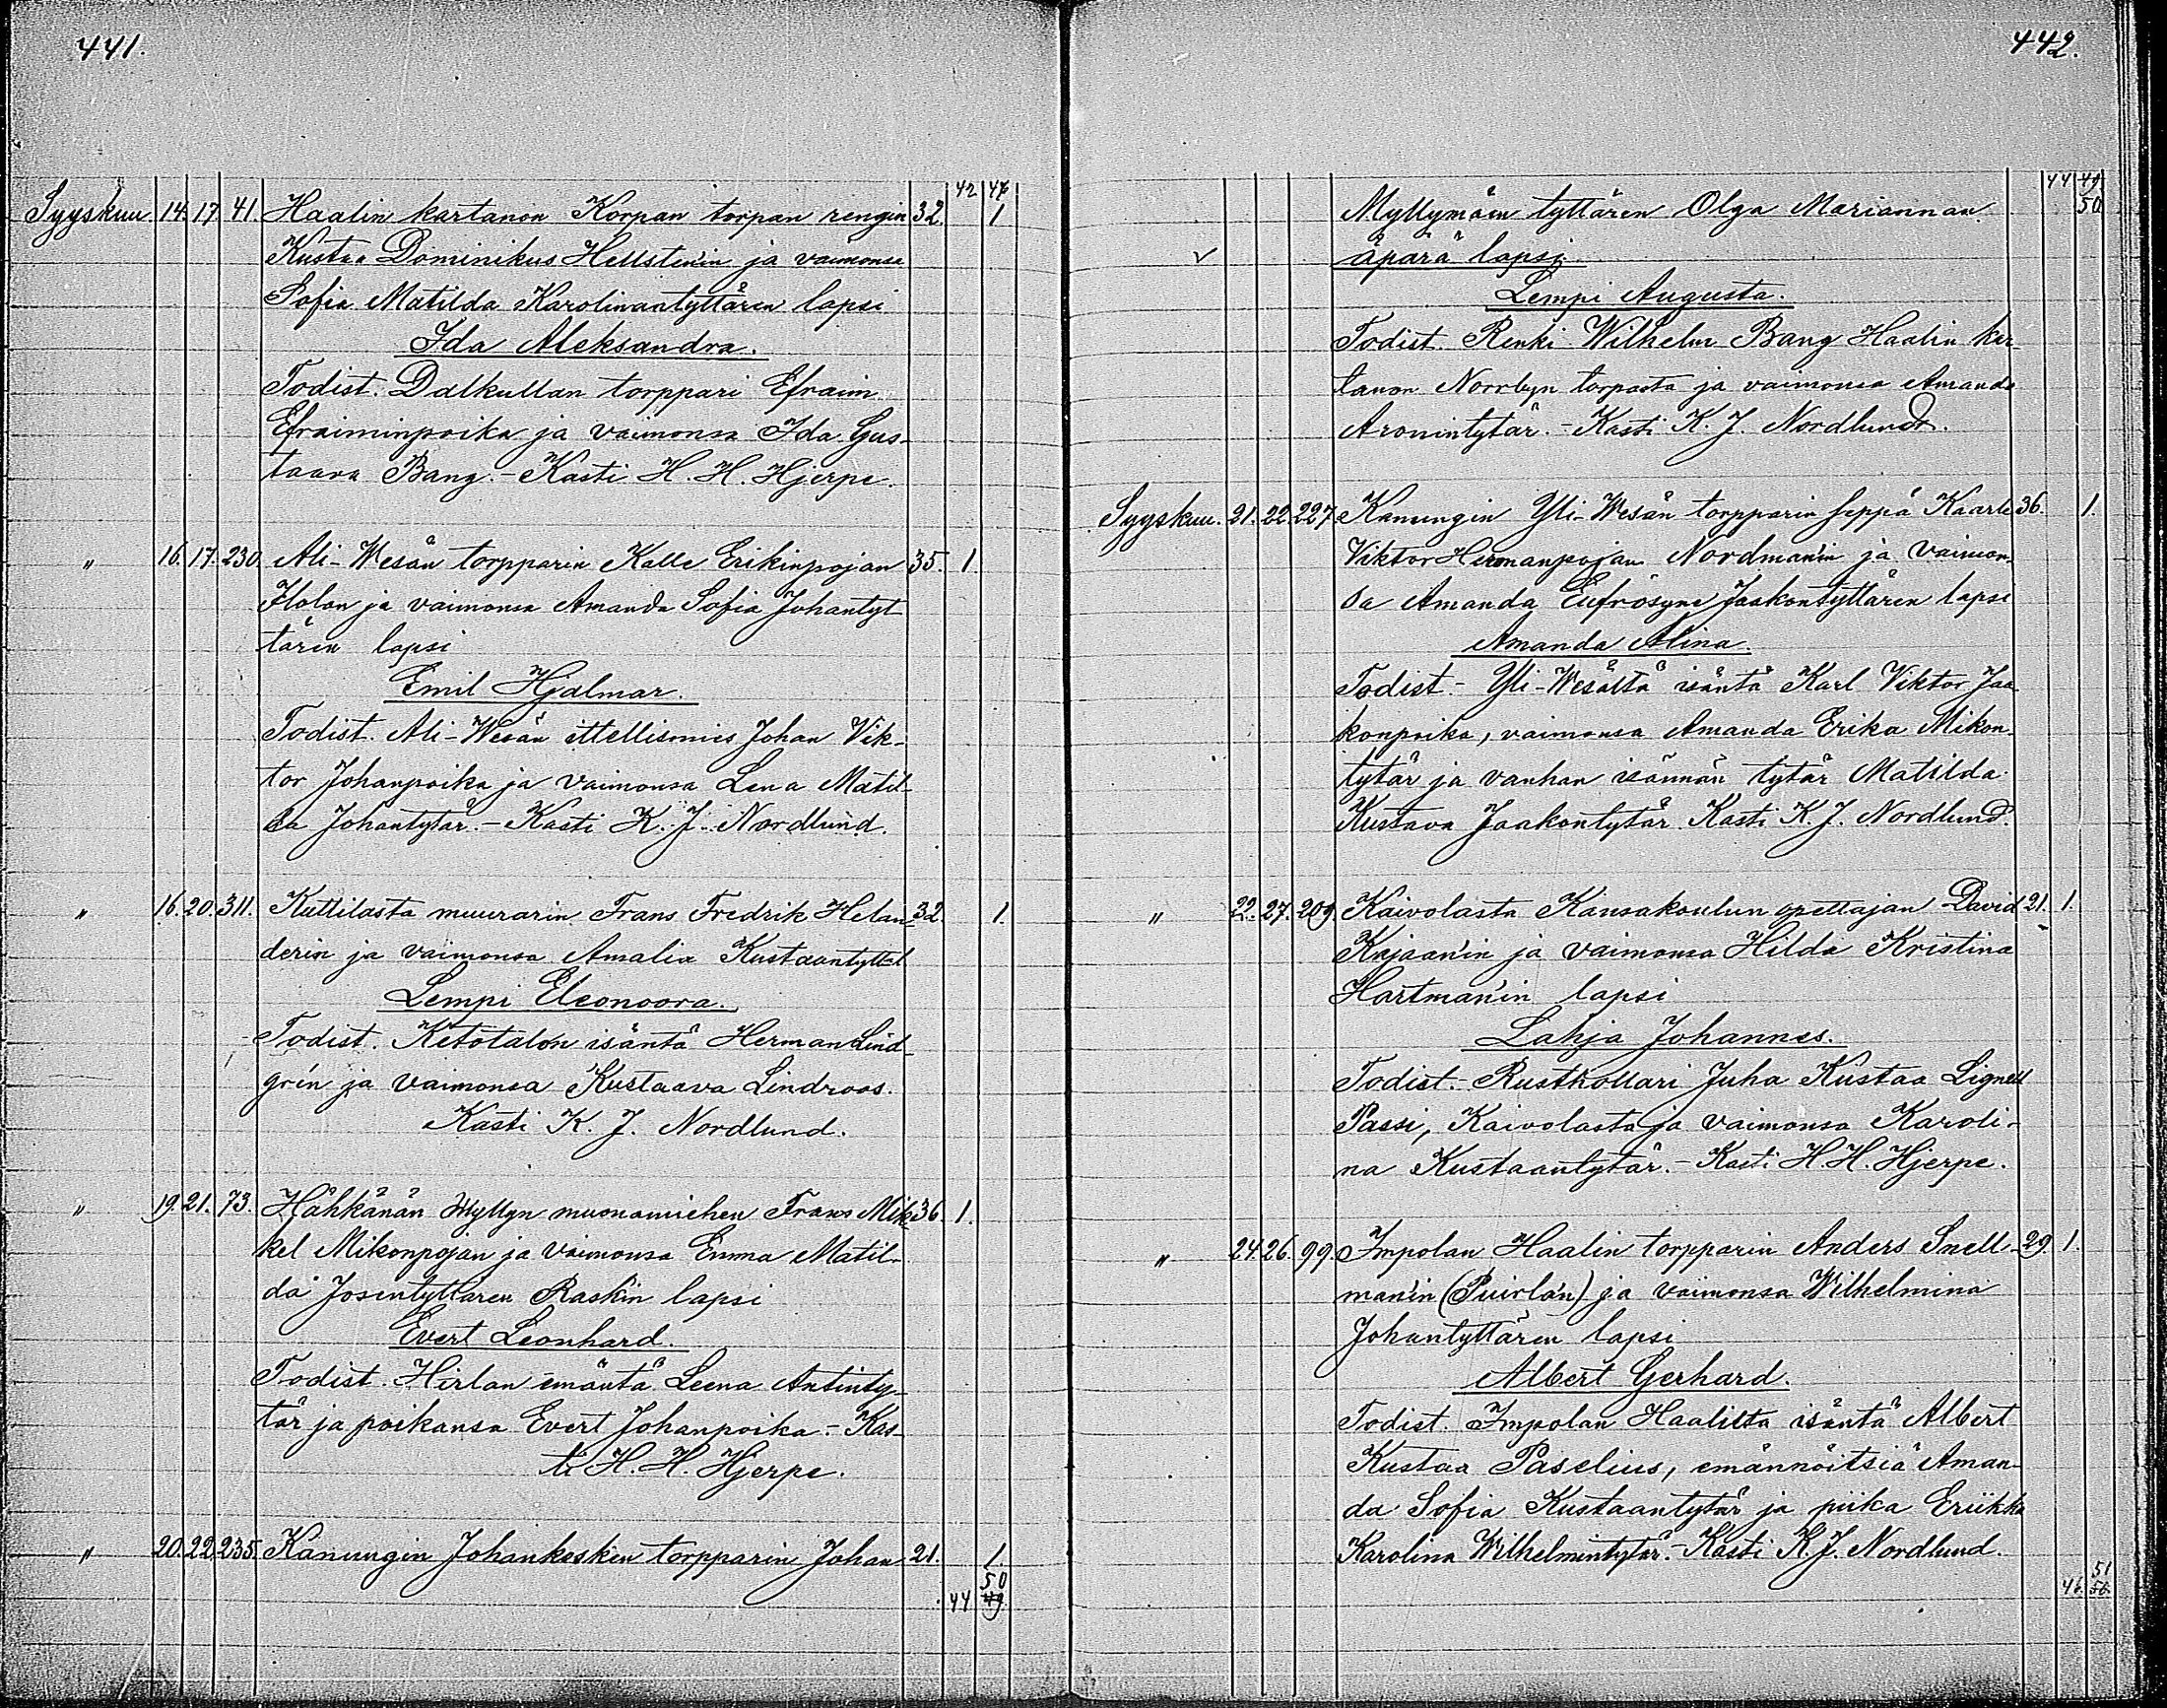 441.
42 47
Syyskuu. 14. 17. 41. Haalin kartanon Korpan torpan rengin 32. 1
Kustaa Dominikus Hellstenin ja vaimonsa
Sofia Matilda Karolinantyttären lapsi
Ida Aleksandra.
Todist. Dalkullan torppari Efraim
Efraiminpoika ja vaimonsa Ida Gus-
taava Bang. - Kasti H. H. Hjerpe.
" 16. 17. 230 Ali-Wesän torpparin Kalle Erikinpojan 35. 1.
Ilolan ja vaimonsa Amanda Sofia Johantyt
tären lapsi
Emil Hjalmar.
Todist. Ali-Wesän ittellismies Johan Vik-
tor Johanpoika ja vaimonsa Lena Matil-
da Johantytär. - Kasti K. J. Nordlund.
" 16. 20. 311. Kuttilasta muurarin Frans Fredrik Helan- 32. 1.
derin ja vaimonsa Amalia Kustaantytt. l.
Lempi Eleonoora.
Todist. Ketotalon isäntä Herman Lind-
grén ja vaimonsa Kustaava Lindroos.
Kasti K. J. Nordlund.
" 19. 21. 73. Hähkänän Myllyn muonamiehen Frans Mik- 36. 1.
kel Mikonpojan ja vaimonsa Emma Matil-
da Josentyttären Raskin lapsi
Evert Leonhard.
Todist. Hirlan emäntä Leena Antinty-
tär ja poikansa Evert Johanpoika. - Kas-
ti H. H. Hjerpe.
" 20. 22. 235. Kanungin Johankesken torpparin Johan 21. 1.
50
44 49
442.
44 49
50
Myllymäen tyttären Olga Mariannan
äpärä lapsi
Lempi Augusta.
Todist. Renki Wilhelm Bang Haalin kar-
tanon Norrbyn torpasta ja vaimonsa Amanda
Aronintytär. - Kasti K. J. Nordlund.
Syyskuu. 21. 22. 227. Kanungin Yli-Wesän torpparin seppä Kaarle 36. 1.
Viktor Hermanpojan Nordmanin ja vaimon-
sa Amanda Eufrosyne Jaakontyttären lapsi
Amanda Alina.
Todist. - Yli-Wesältä isäntä Karl Viktor Jaa-
konpoika, vaimonsa Amanda Erika Mikon-
tytär ja vanhan isännän tytär Matilda
Kustava Jaakontytär. Kasti K. J. Nordlund.
" 22. 27. 209. Kaivolasta Kansakoulun opettajan David 21. 1.
Kajaanin ja vaimonsa Hilda Kristina
Hartmanin lapsi
Lahja Johannes.
Todist. - Rusthollari Juha Kustaa Lignell
Passi, Kaivolasta ja vaimonsa Karoli-
na Kustaantytär. - Kasti H. H. Hjerpe.
" 24. 26. 99. Impolan Haalin torpparin Anders Snell- 29. 1.
manin (Puirlan) ja vaimonsa Wilhelmina
Johantyttären lapsi
Albert Gerhard.
Todist. Impolan Haalilta isäntä Albert
Kustaa Paselius, emännöitsiä Aman-
da Sofia Kustaantytär ja piika Eriikka
Karolina Wilhelmintytär. - Kasti K. J. Nordlund.
51
46.